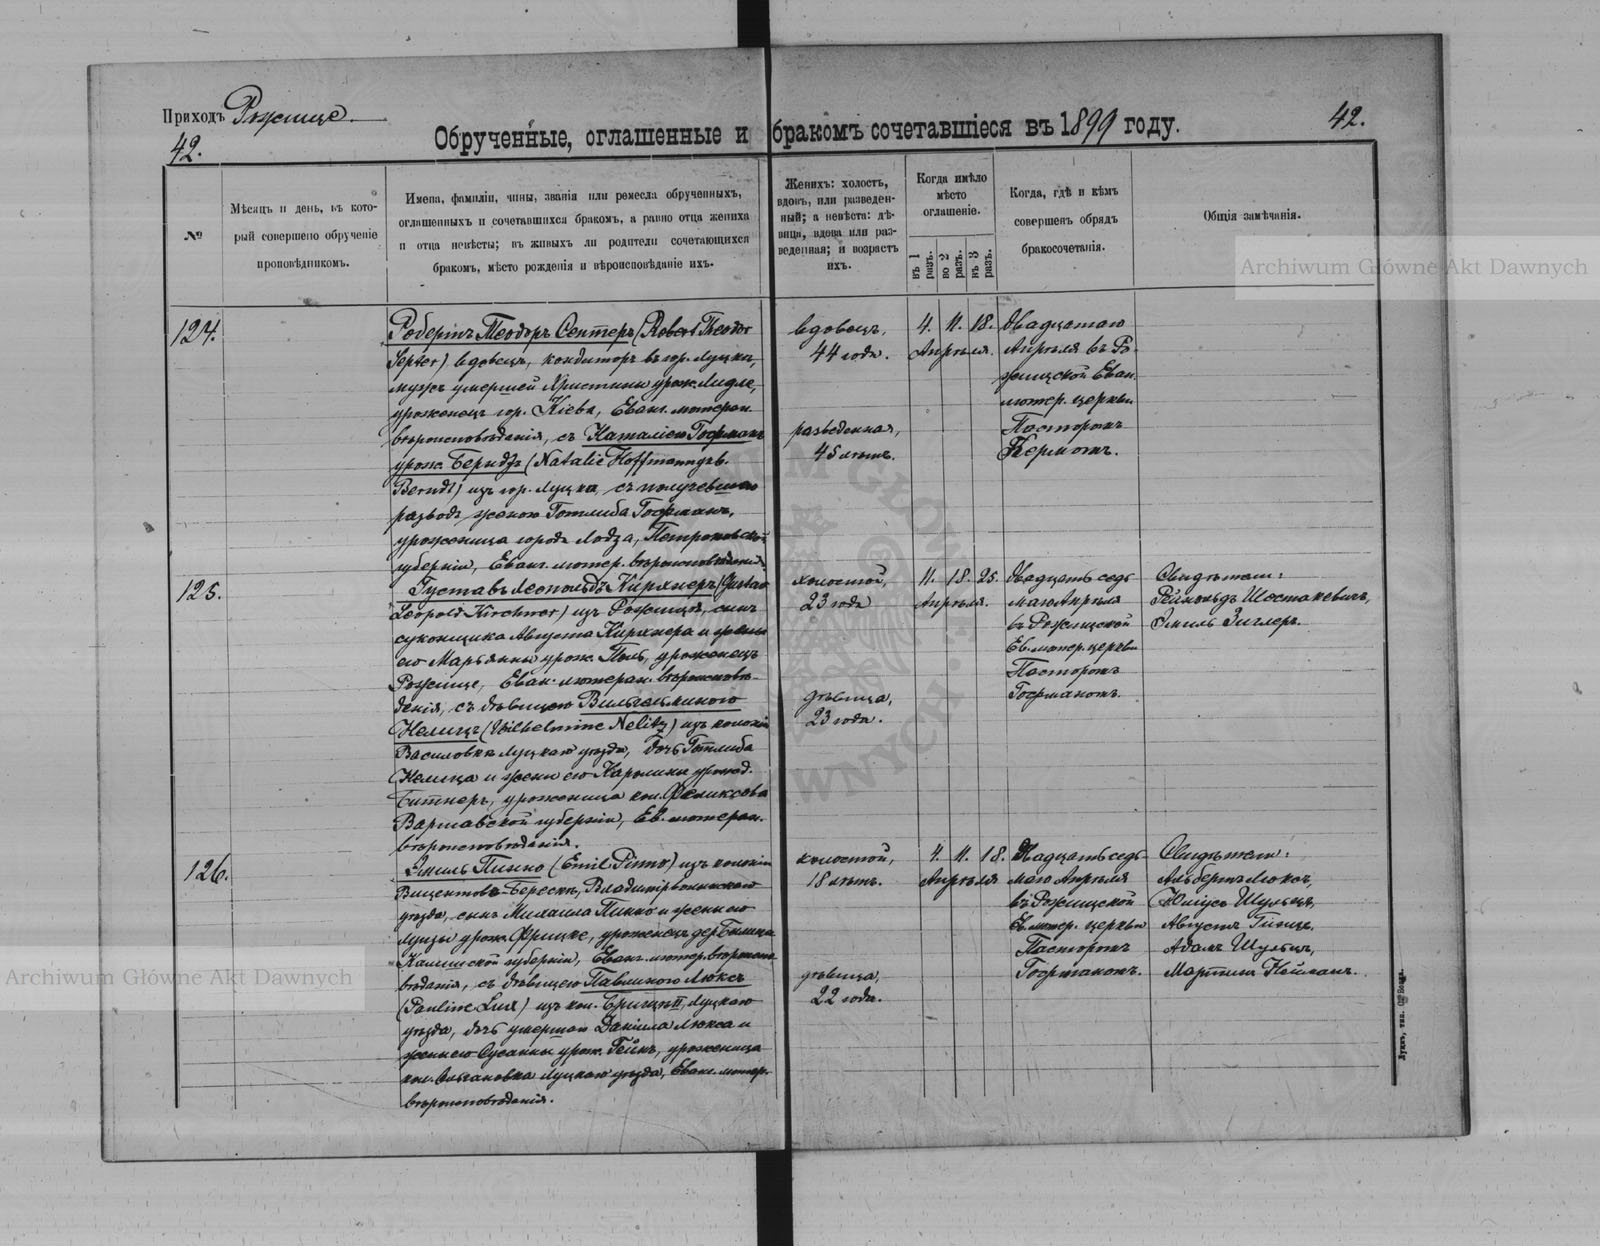 Приходъ Рожище.
42.
42.
Обрученные, оглашенные и бракомъ сочетавшіеся въ 1899 году.
№
Мѣсяцъ и день, въ кото-
рый совершено обрученіе
проповѣдникомъ.
Имена, фамиліи, чины, званія или ремесла обрученныхъ,
оглашенныхъ и сочетавшихся бракомъ, а равно отца жениха
и отца невѣсты; въ живыхъ ли родители сочетающихся
бракомъ, мѣсто рожденія и вѣроисповѣданіе ихъ.
Женихъ: холостъ,
вдовъ, или разведен-
ный; а невѣста: дѣ-
вица, вдова или раз-
веденная; и возрастъ
ихъ.
Когда имѣло
мѣсто
оглашеніе.
въ 1 разъ.
во 2 разъ.
въ 3 разъ.
Когда, гдѣ и кѣмъ
совершенъ обрядъ
бракосочетанія.
Общія замѣчанія.
124.
Робертъ Теодоръ Септеръ (Robert Theodor
Septer) вдовецъ, кондиторъ въ гор. Луцкѣ,
мужъ умершей Христины урож. Лидле,
уроженецъ гор. Кіева, Еванг. лютеран.
вѣроисповѣданія, съ Наталіею Гофманъ
урож. Берндтъ (Natalie Hoffmann geb.
Berndt) изъ гор. Луцка, съ получевшею
разводъ женою Готлиба Гофмана,
уроженица города Лодза, Петроковской
губерніи, Еванг. лютер. вѣроисповѣданія.
вдовецъ,
44 года.
разведенная,
45 лѣтъ.
4. 11. 18.
Апрѣля.
Двадцатаго
Апрѣля въ Ро-
жищской Еван.
лютер. церкви
Пасторомъ
Керномъ.
125.
Густавъ Леопольдъ Кирхнеръ (Gustav
Leopold Kirchner) изъ Рожища, сынъ
суконщика Августа Кирхнера и жены
его Марьянны урож. Поль, уроженецъ
Рожище, Еван. лютеран. вѣроисповѣ-
данія, съ дѣвицею Вильгельминою
Нелицъ (Wilhelmine Nelitz) изъ колоніи
Василовка Луцкаго уѣзда, дочь Готлиба
Нелица и жены его Каролины урожд.
Битнеръ, уроженица кол. Феликсова
Варшавской губерніи, Ев. лютеран.
вѣроисповѣданія.
холостой,
23 года
дѣвица,
23 года.
11. 18. 25.
Апрѣля.
Двадцать седь-
маго Апрѣля
въ Рожищской
Ев. лютер. церкви
Пасторомъ
Гофманомъ.
Свидѣтели:
Рейнольдъ Шостакевичъ,
Эмиль Зиглеръ.
126.
Эмиль Пинно (Emil Pinno) изъ колоніи
Вицентовъ-Берескъ, Владимірволынскаго
уѣзда, сынъ Михаила Пинно и жены его
Луизы урож. Фрицке, уроженецъ дер.
Калишской губерніи, Еванг. лютер. вѣроиспо-
вѣданія, съ дѣвицею Павлиною Люксъ
(Pauline Lux) изъ кол. II, Луцкаго
уѣзда, дочь умершаго Даніила Люкса и
жены его Сусанны урож. Гейнъ, уроженица
кол. Луцкаго уѣзда, Еванг. лютер.
вѣроисповѣданія.
холостой,
18 лѣтъ.
дѣвица,
22 года.
4. 11. 18.
Апрѣля
Двадцать седь-
маго Апрѣля
въ Рожищской
Ев. лютер. церкви
Пасторомъ
Гофманомъ.
Свидѣтели:
Альбертъ Люксъ,
Юлiусъ Шульцъ,
Августъ Гинце,
Адамъ Шульцъ,
Мартинъ Нейманъ.
Archiwum Główne Akt Dawnych
Archiwum Główne Akt Dawnych